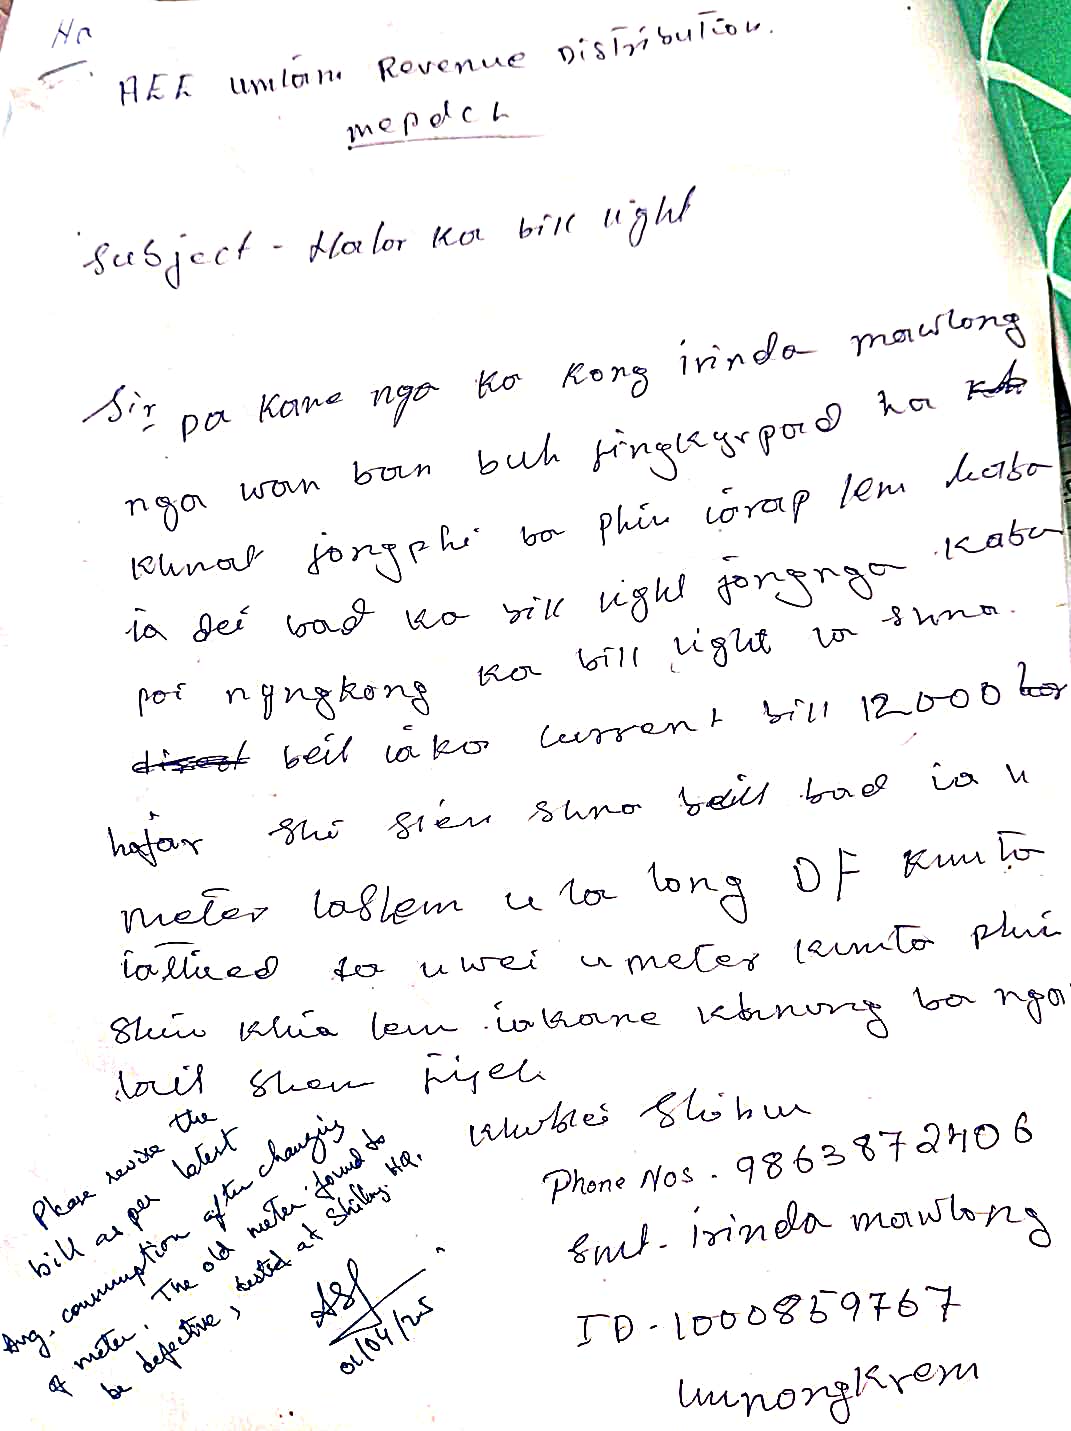 Ha
AEE Umiam Revenue Distribution.
mepdcl
Subject - Halor ka bill light
Sir pa kane nga ka Kong irinda mawlong
nga wan ban buh jingkyrpad ha
khnat jongphi ba phin iarap lem haba
ia dei bad ka bill light jongnga kaba
poi nyngkong ka bill light la shna.
beit iaka current bill 12000
hajar shi sien shna beit bad ia u
meter lastem u la long DF kumto
ia thied sa uwei u meter kumto phin
shim khia lem iakane khnung ba nga
lait shem jijeh
Khublei Shibun
Phone Nos. 9863872406
Smt. irinda mawlong
ID - 1000859767
Umnongkrem
Please revise the
bill as per latest
Avg. consumption after changing
of meter. The old meter found to
be defective, tested at Shillong HQ.
01/04/25